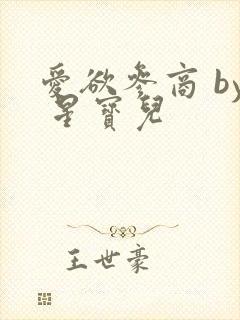 愛欲參商 by
星寶兒
王世豪